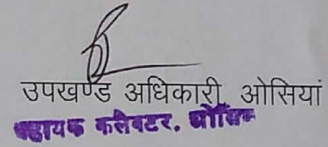 उपखण्ड अधिकारी, ओसियां
सहायक कलैक्टर, ओसियां